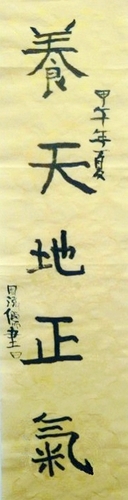 養天地正氣
甲午年夏
書